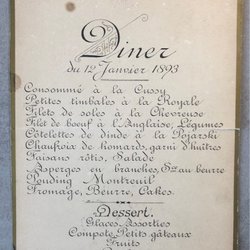 Diner
du 12 Janvier 1893
Consommé à la Cussy
Petites timbales à la Royale
Filets de soles à la Chevreuse
Filet de boeuf à l'Anglaise, Légumes
Côtelettes de dinde à la Pojarski
Chaufroix de homards, garni d'huîtres
Faisans rôtis, Salade
Asperges en branches, Sce au beurre
Pouding Montreuil
Fromage, Beurre, Cakes
Dessert.
Glaces Assorties
Compote, Petits gâteaux
Fruits